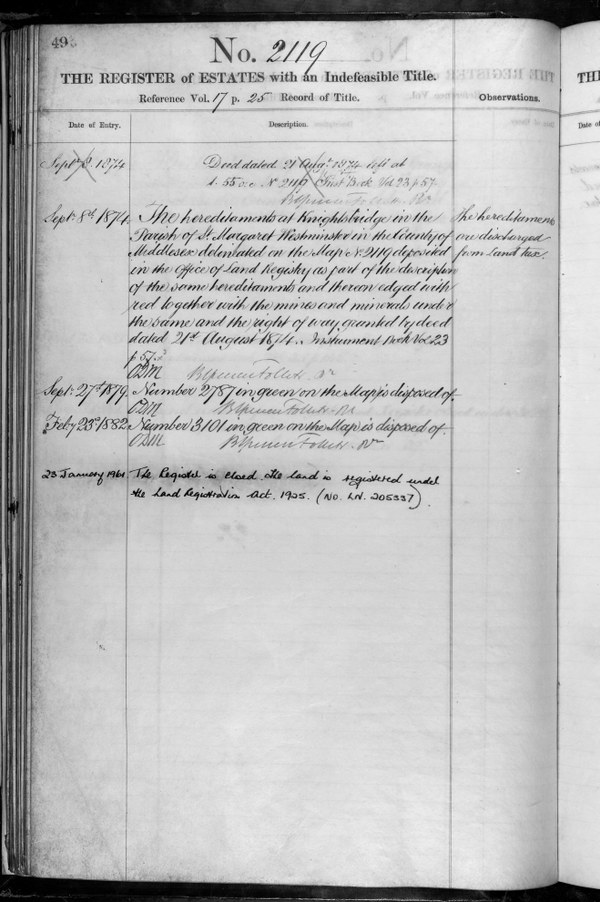 49
No. 2119
THE REGISTER of ESTATES with an Indefeasible Title.
Reference Vol. 17 p. 25 Record of Title.
Observations.
Date of Entry.
Description.
Sept. 8. 1874
Deed dated 21 Augt. 1874 left at
1. 55 Nº 2119 Inst Book Vol 23 p 57
Sept. 8th 1874.
The hereditaments at Knightsbridge in the
Parish of St. Margaret Westminster in the County of
Middlesex delineated on the Map Nº 2119 deposited
in the Office of Land Registry as part of the description
of the same hereditaments and thereon edged with
red together with the mines and minerals under
the same and the right of way granted by deed
dated 21st August 1874. Instrument Book Vol. 23
p 57.
The hereditaments
are discharged
from Land tax.
Follett
Sept. 27th 1879.
Number 2787 in green on the Map is disposed of
Follett
Feby 23d 1882
Number 3101 in green on the Map is disposed of
Follett
23 January 1961
The Register is closed. The land is registered under
the Land Registration Act. 1925. (NO. LN. 205337).
THE REGISTER
TH
Date of